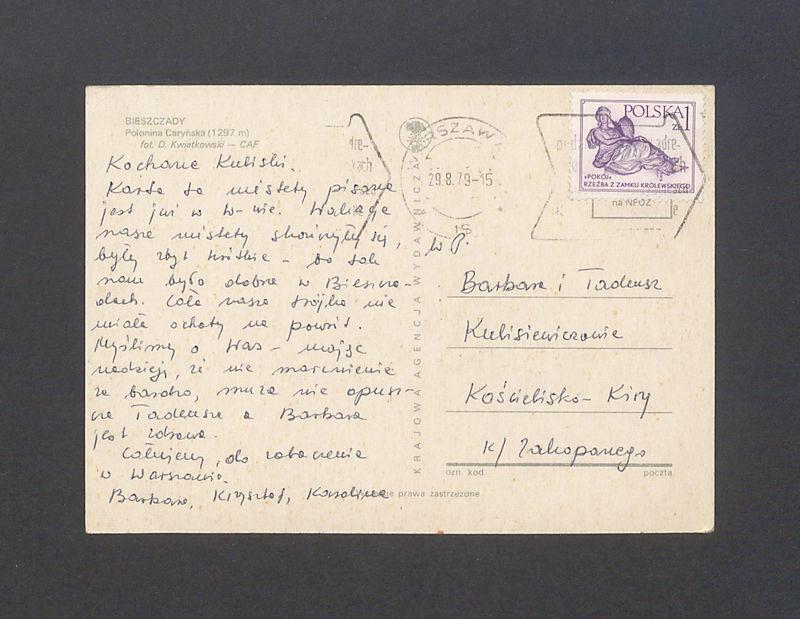 BIESZCZADY
Połonina Caryńska (1297 m)
fot. D. Kwiatkowski — CAF
Kochane Kuliski.
Karta ta niestety pisana
jest już w W-wie. Wakacje
nasze niestety skończyły się,
były zbyt krótkie - bo tak
nam było dobrze w Bieszcza-
dach. Cała nasza trójka nie
miała ochoty na powrót.
Myślimy o Was - mając
nadzieję, że nie marzniecie
za bardzo, muza nie opusz-
cza Tadeusza a Barbara
jest zdrowa.
Całujemy, do zobaczenia
w Warszawie.
Barbara, Krzysztof, Karolina
KRAJOWA AGENCJA WYDAWNICZA
prawa zastrzeżone
WARSZAWA
29.8.79-15
POLSKA 1
ZŁ
»POKÓJ«
RZEŹBA Z ZAMKU KRÓLEWSKIEGO
na NFOZ
W P.
Barbara i Tadeusz
Kulisiewiczowie
Kościelisko - Kiry
k/ Zakopanego
ozn. kod
poczta